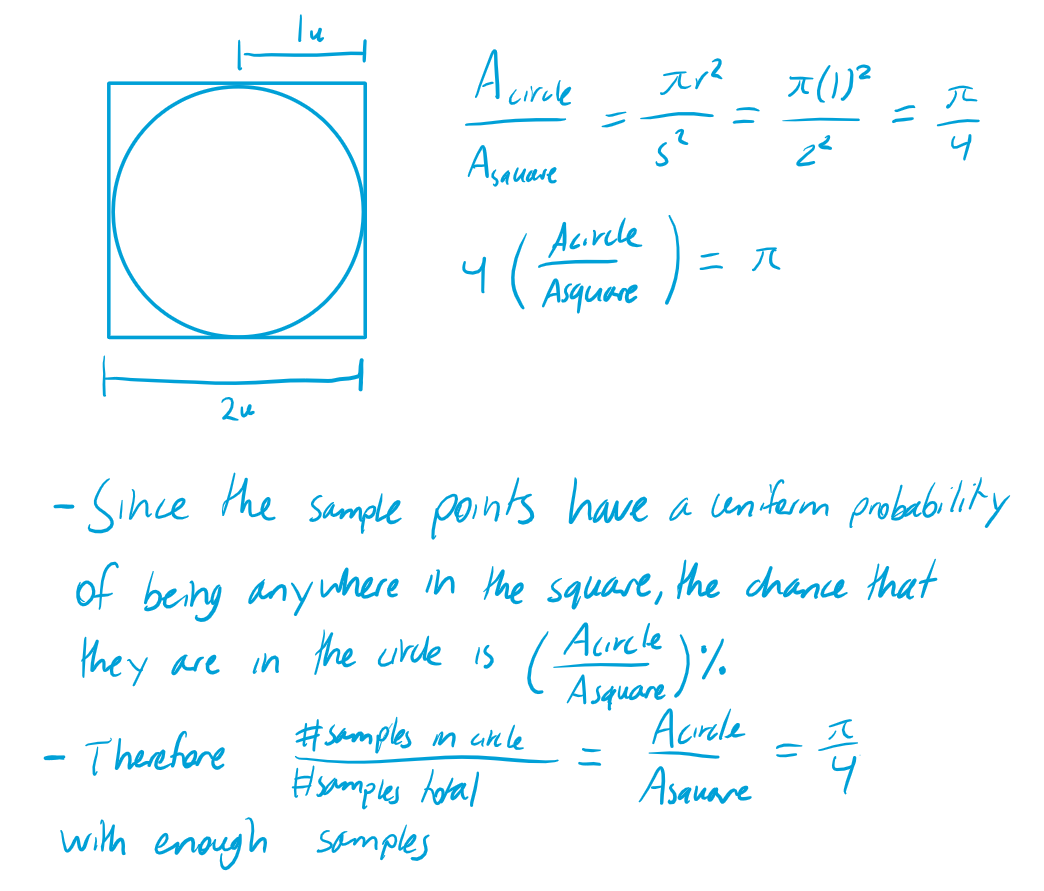 1u
A circle / A square = πr² / s² = π(1)² / 2² = π / 4
4 ( A circle / A square ) = π
2u
- Since the sample points have a uniform probability
of being anywhere in the square, the chance that
they are in the circle is ( A circle / A square ) %
- Therefore # samples in circle / # samples total = A circle / A square = π / 4
with enough samples